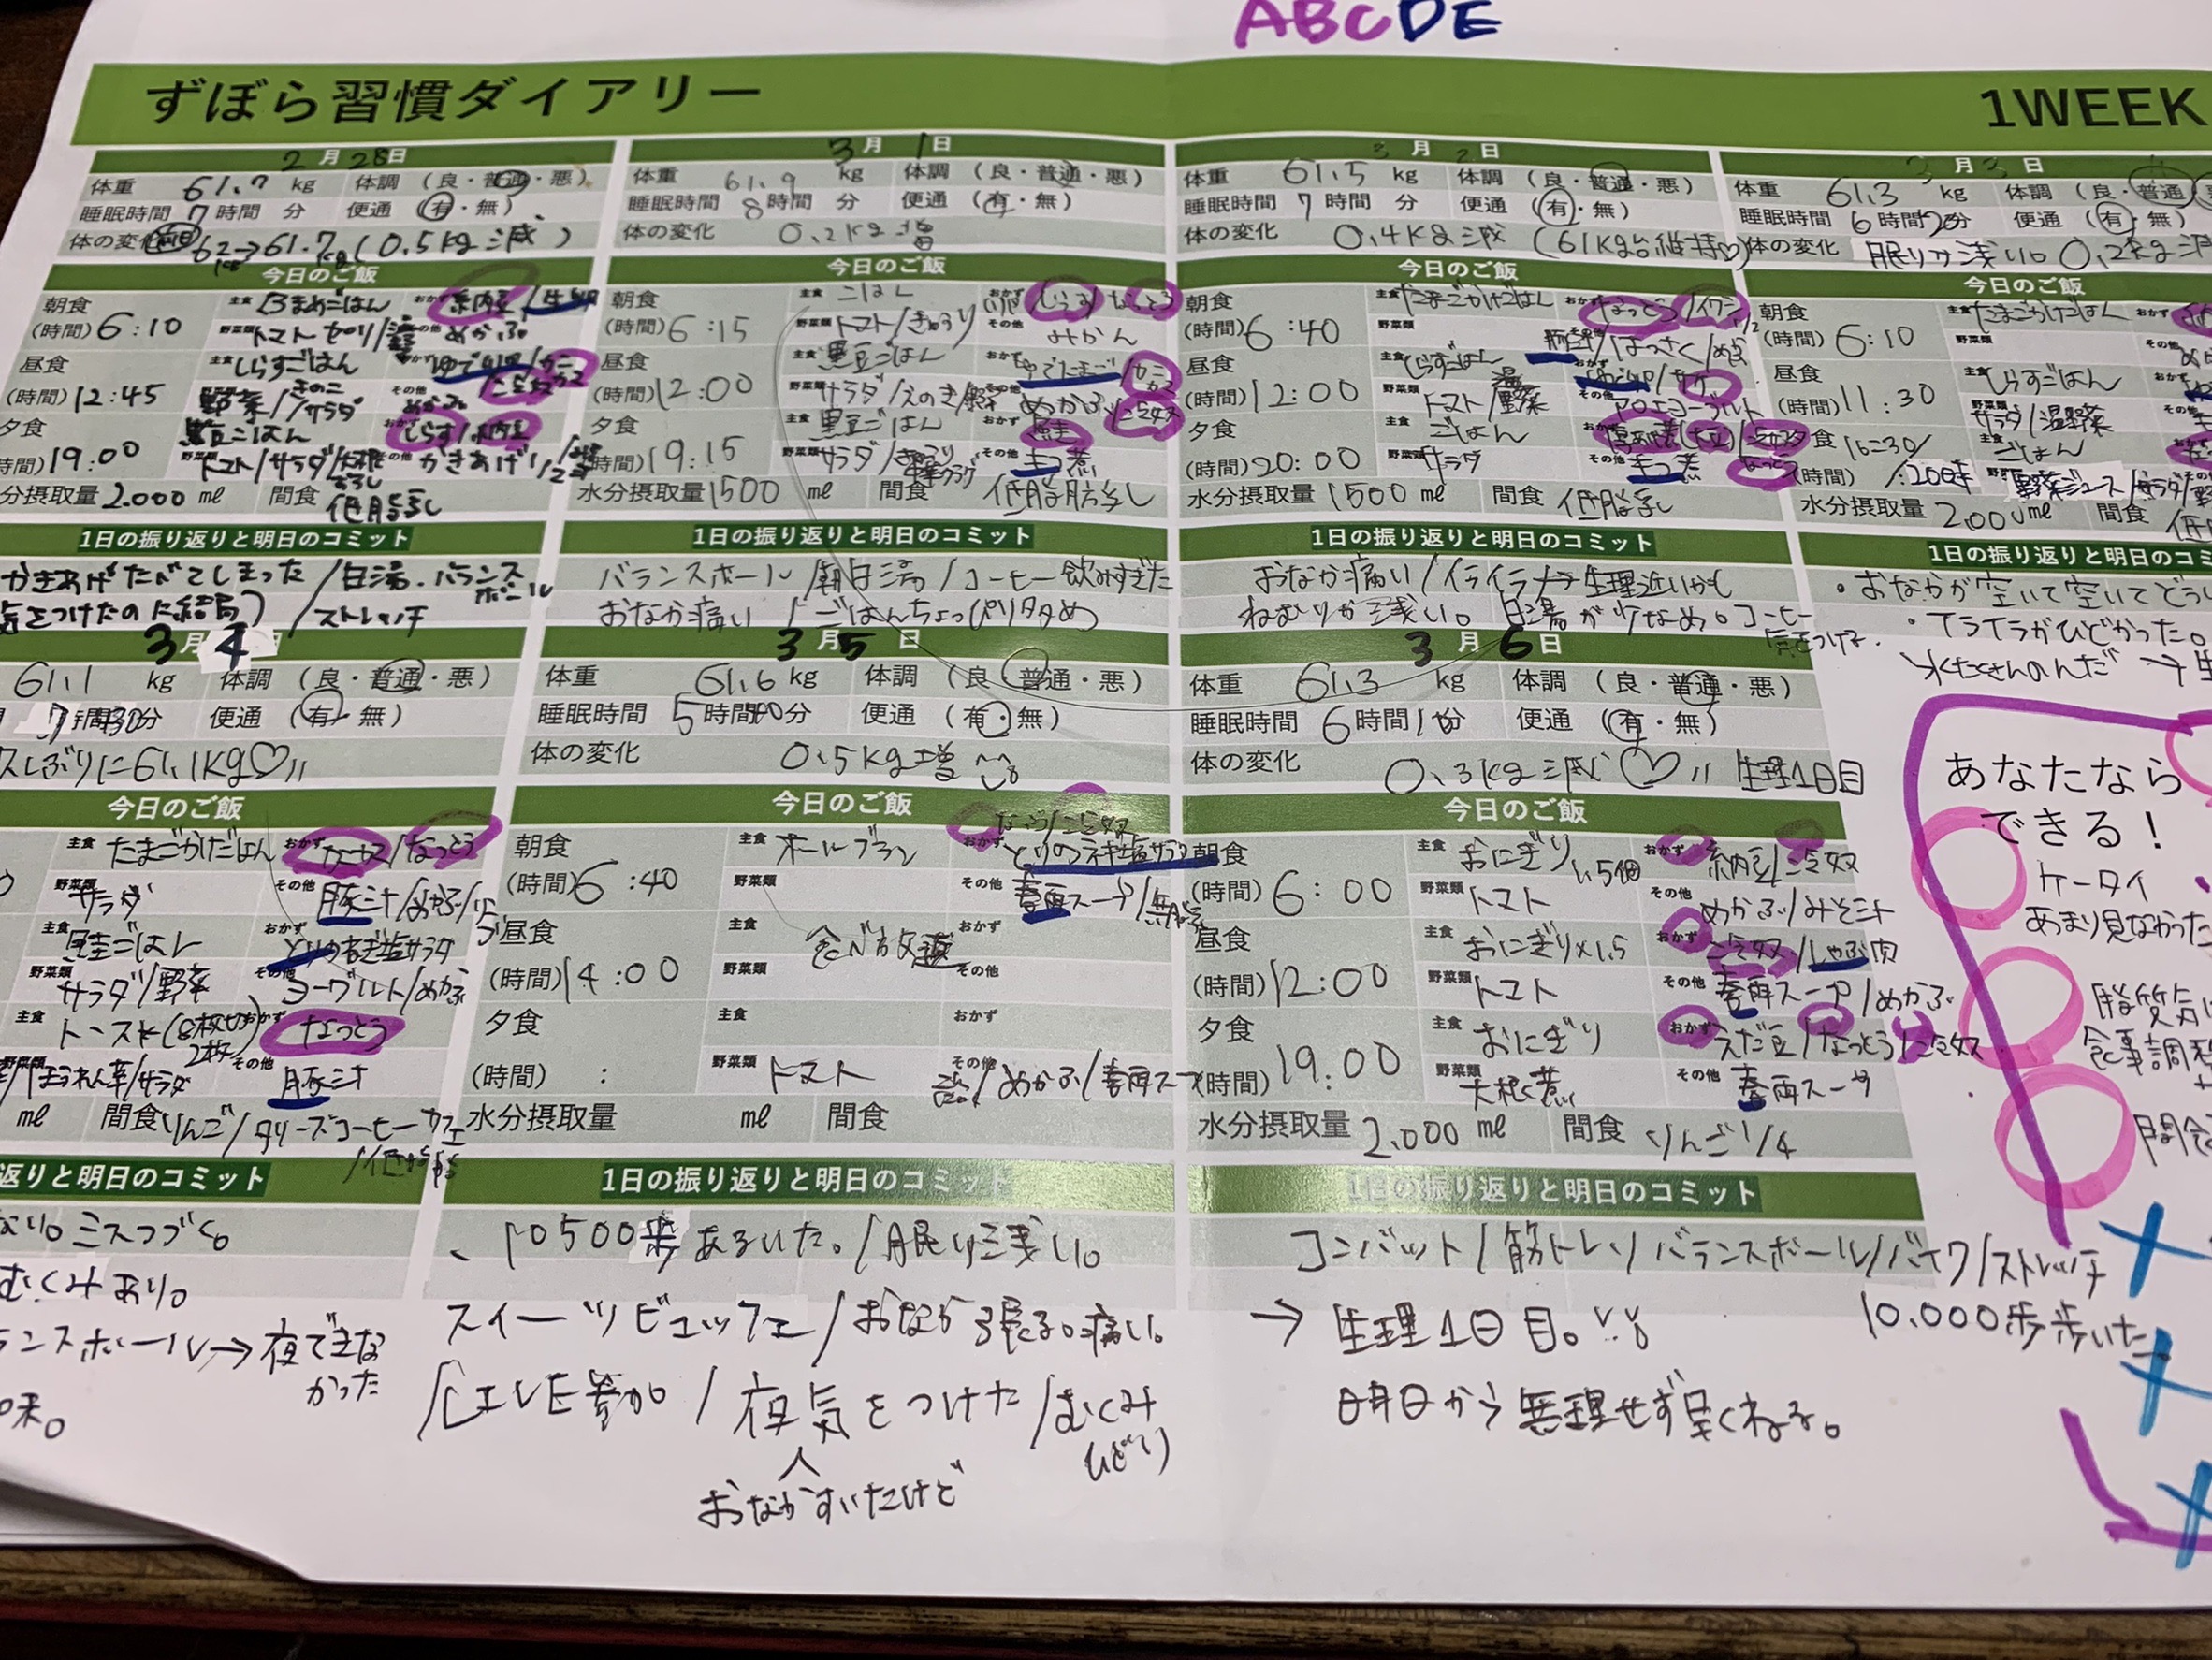 ABCDE
ずぼら習慣ダイアリー
1WEEK
2月28日
体重 61.7 kg 体調 (良・普通・悪)
睡眠時間 7時間 分 便通 (有・無)
体の変化 62kg→61.7kg(0.5kg減)
今日のご飯
朝食 主食 おかず 納豆/生卵
(時間)6:10 野菜類 トマト その他 めかぶ
昼食 主食 しらすごはん おかず ゆで卵/カニカマ
(時間)12:45 野菜類 きのこ 野菜/サラダ その他 めかぶ
夕食 主食 黒豆ごはん おかず しらす/納豆
時間)19:00 野菜類 トマト/サラダ/大根おろし その他 かきあげ1/2
分摂取量 2.000 ml 間食 低脂乳
1日の振り返りと明日のコミット
かきあげたべてしまった/白湯・バランスボール
気をつけたのに結局) /ストレッチ
3月1日
体重 61.9 kg 体調 (良・普通・悪)
睡眠時間 8時間 分 便通 (有・無)
体の変化 0.2kg増
今日のご飯
朝食 主食 ごはん おかず しらす/なっとう
(時間)6:15 野菜類 トマト/きゅうり その他 みかん
昼食 主食 黒豆ごはん おかず ゆでたまご/カニカマ
(時間)12:00 野菜類 サラダ/えのき/野菜 その他 めかぶ
夕食 主食 黒豆ごはん おかず 鮭
(時間)19:15 野菜類 サラダ/きゅうり その他 煮
水分摂取量 1500 ml 間食 低脂肪乳
1日の振り返りと明日のコミット
バランスボール/朝白湯/コーヒー飲みすぎた
おなか痛い/ごはんちょっぴり多め
3月2日
体重 61.5 kg 体調 (良・普通・悪)
睡眠時間 7時間 分 便通 (有・無)
体の変化 0.4kg減 (61kg台維持♡)
今日のご飯
朝食 主食 たまごかけごはん おかず なっとう/イワシ1/2
(時間)6:40 野菜類 その他 豚汁/はっさく/めかぶ
昼食 主食 しらすごはん おかず サケ
(時間)12:00 野菜類 トマト/温野菜 その他 アロエヨーグルト
夕食 主食 ごはん おかず
(時間)20:00 野菜類 サラダ その他 煮 なっとう
水分摂取量 1500 ml 間食 低脂乳
1日の振り返りと明日のコミット
おなか痛い/イライラ→生理近いかも
ねむりが浅い。白湯が少なめ。コーヒー気をつける。
3月3日
体重 61.3 kg 体調 (良・普通
睡眠時間 6時間20分 便通 (有・無)
体の変化 眠りが浅い。0.2kg減
今日のご飯
朝食 主食 たまごかけごはん
(時間)6:10 野菜類
昼食 主食 しらすごはん
(時間)11:30 野菜類 サラダ/温野菜
夕食 16:30/ 主食 ごはん
(時間) 野菜ジュース/サラダ/
水分摂取量 2.000ml 間食
1日の振り返りと明日のコミ
・おなかが空いて空いてどうし
・イライラがひどかった。
水たくさんのんだ →生
3月4日
61.1 kg 体調 (良・普通・悪)
7時間30分 便通 (有・無)
スしぶりに61.1kg♡〃
今日のご飯
主食 たまごかけごはん おかず /なっとう
野菜類 サラダ その他 豚汁/めかぶ/
主食 鮭ごはん おかず とりのねぎ塩サラダ
野菜類 サラダ/野菜 その他 ヨーグルト/めかぶ
主食 トースト(8枚切2枚) おかず なっとう
野菜類 /ほうれん草/サラダ その他 豚汁
ml 間食 りんご/タリーズコーヒー カフェ
返りと明日のコミット
ない。ミスつづく。
むくみあり。
ランスボール→夜できなかった
3月5日
体重 61.6 kg 体調 (良・普通・悪)
睡眠時間 5時間 分 便通 (有・無)
体の変化 0.5kg増
今日のご飯
朝食 主食 オールブラン おかず とりのネギ塩サラダ
(時間)6:40 野菜類 その他 春雨スープ/
昼食 主食 食べ放題 おかず
(時間)14:00 野菜類 その他
夕食 主食 おかず
(時間) : 野菜類 トマト その他 /めかぶ/春雨スープ
水分摂取量 ml 間食
1日の振り返りと明日のコミット
10500歩あるいた。/眠り浅い。
スイーツビュッフェ/おなか張る。痛い。
/夜気をつけた/むくみひどい
おなかすいたけど
3月6日
体重 61.3 kg 体調 (良・普通・悪)
睡眠時間 6時間 分 便通 (有・無)
体の変化 0.3kg減♡〃 生理1日目
今日のご飯
朝食 主食 おにぎり1.5個 おかず 納豆/
(時間)6:00 野菜類 トマト その他 めかぶ/みそ汁
昼食 主食 おにぎり×1.5 おかず /しゃぶ肉
(時間)12:00 野菜類 トマト その他 春雨スープ/めかぶ
夕食 主食 おにぎり おかず えだ豆/なっとう/
(時間)19:00 野菜類 大根煮 その他 春雨スープ
水分摂取量 2.000 ml 間食 りんご1/4
1日の振り返りと明日のコミット
コンバット/筋トレ/バランスボール/バイク/ストレッチ
10.000歩歩いた
→生理1日目。
明日から無理せず早くねる。
あなたなら
できる!
ケータイ
あまり見なかった
脂質気
食事調整
間食